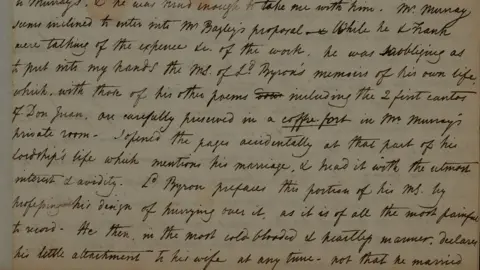 to Murray's. & he was kind enough to take me with him. Mr. Murray
seems inclined to enter into Mr Bagley's proposal. While he & Frank
were talking of the expence &c of the work, he was so obliging as
to put into my hands the MS. of Ld. Byron's memoirs of his own life,
which, with those of his other poems including the 2 first cantos
of Don Juan, are carefully preserved in a coffre fort in Mr Murray's
private room. I opened the pages accidentally at that part of his
lordship's life which mentions his marriage, & read it with the utmost
interest & avidity. Ld Byron prefaces this portion of his MS. by
professing his design of hurrying over it, as it is of all the most painful
to record. He then, in the most cold blooded & heartless manner, declares
his little attachment to his wife at any time - not that he married